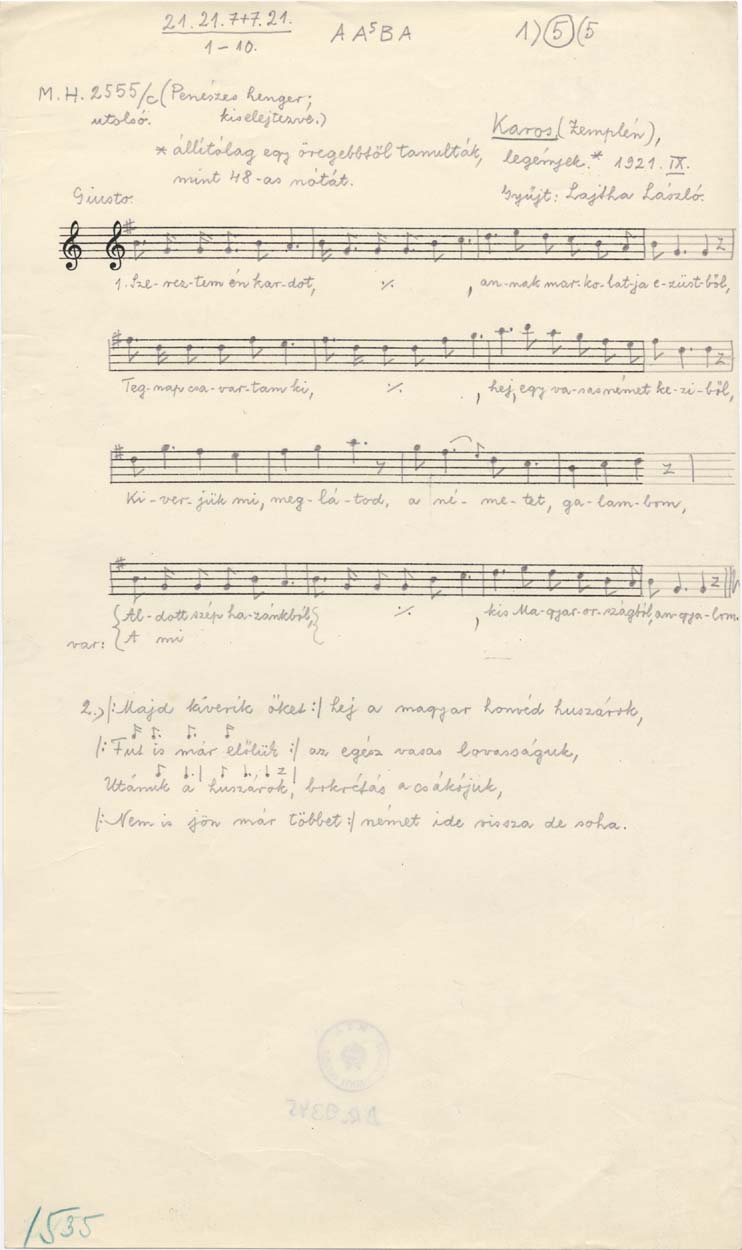 21. 21. 7+7. 21. A A⁵ B A 1) ⑤ (5
1–10.
M. H. 2555/c (Penészes henger;
utolsó. kiselejtezve.)
Karos, (Zemplén),
* állítólag egy öregebbtől tanulták, legények.* 1921. IX.
mint 48-as nótát.
Giusto. Gyűjt: Lajtha László.
1. Sze-rez-tem én kar-dot, ·/· , an-nak mar-ko-lat-ja e-züst-ből,
Teg-nap csa-var-tam ki, ·/· , hej, egy va-sas német ke-zi-ből,
Ki-ver-jük mi, meg-lá-tod, a né-me-tet, ga-lam-bom,
Ál-dott szép ha-zánkból, ·/· , kis Ma-gyar-or-szágból, an-gya-lom.
var: A mi
2.) /: Majd kiverik őket :/ hej a magyar honvéd huszárok,
/: Fut is már előlük :/ az egész vasas lovasságuk,
Utánuk a huszárok, bokrétás a csákójuk,
/: Nem is jön már többet :/ német ide vissza de soha.
1535